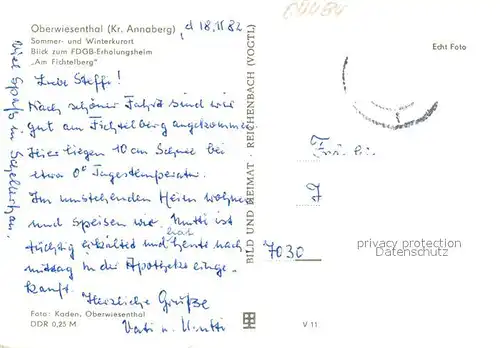 Oberwiesenthal (Kr. Annaberg)
Sommer- und Winterkurort
Blick zum FDGB-Erholungsheim
„Am Fichtelberg"
d 18.11.82
Echt Foto
Liebe Steffi!
Nach schöner Fahrt sind wir
gut am Fichtelberg angekommen
Hier liegen 10 cm Schnee bei
etwa 0° Tagestemperatur.
Im umstehenden Heim wohnen
und speisen wir. Mutti ist
tüchtig erkältet und hat heute nach-
mittag in der Apotheke einge-
kauft.
Herzliche Grüße
Vati u. Mutti
Viel Spaß in
BILD UND HEIMAT · REICHENBACH (VOGTL)
7030
privacy protection
Datenschutz
Foto: Kaden, Oberwiesenthal
DDR 0,25 M
V 11